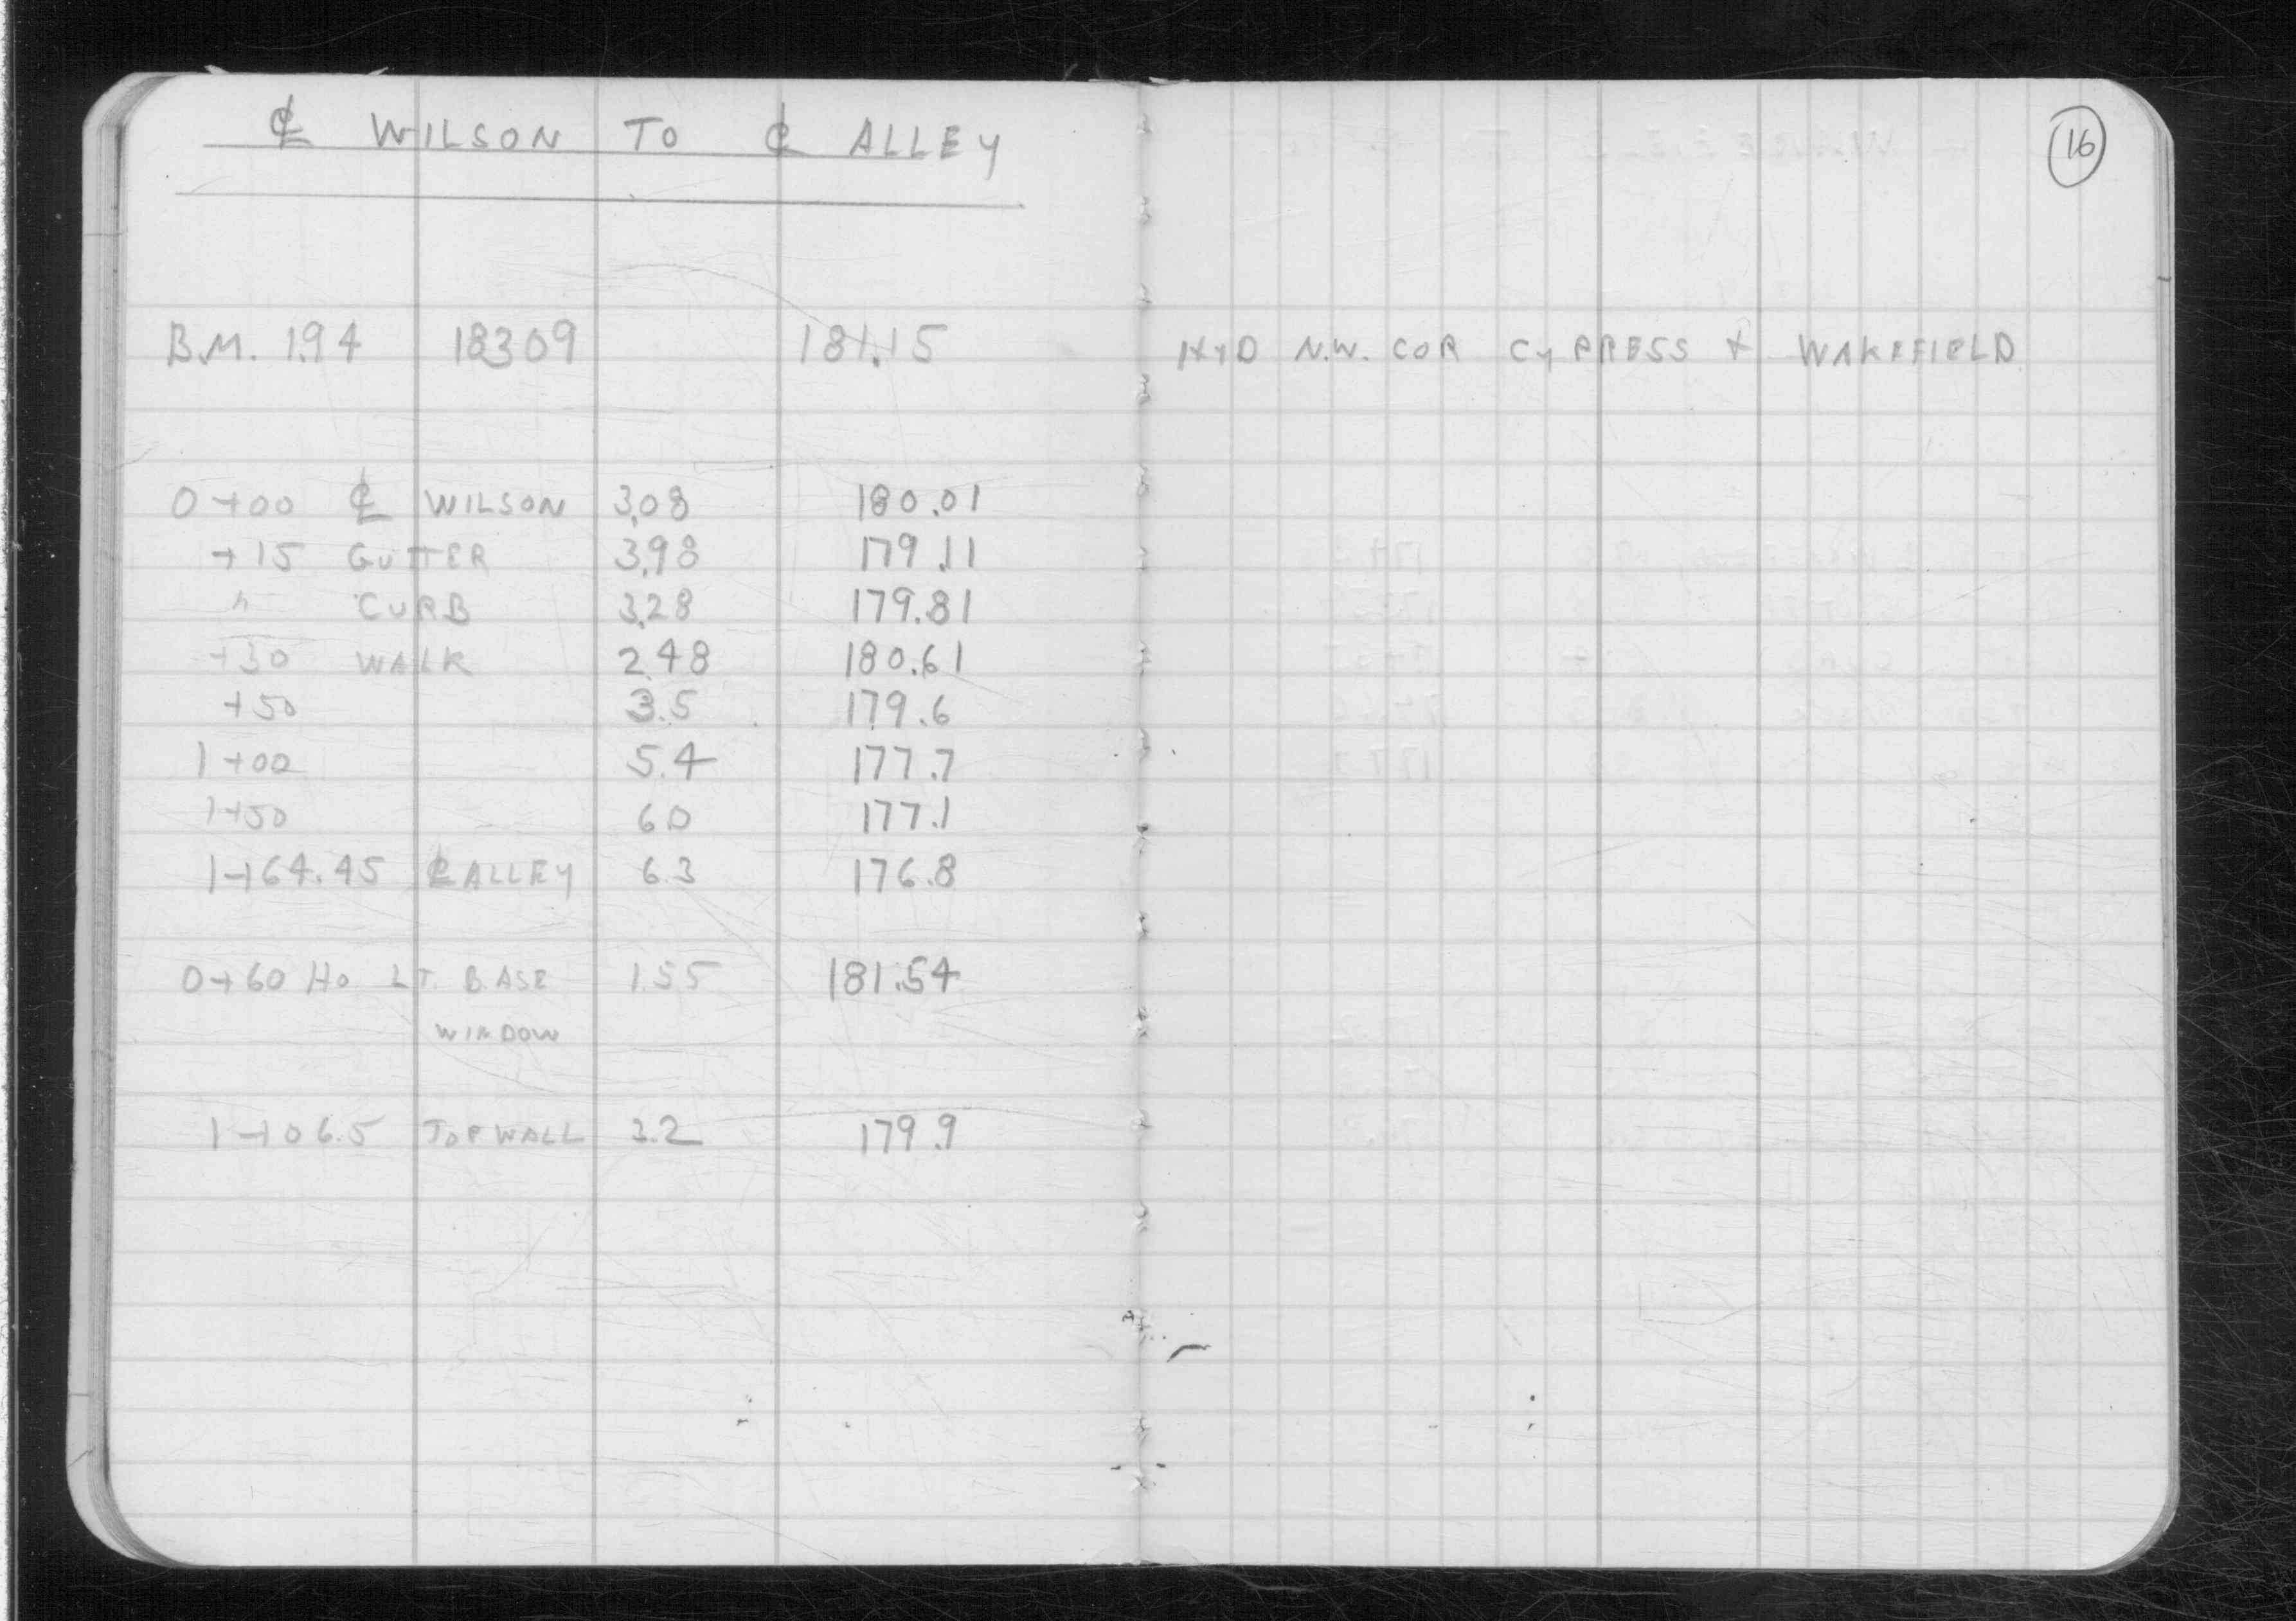 ℄ WILSON TO ℄ ALLEY
16
B.M. 1.94 183.09 181.15 HYD N.W. COR CYPRESS & WAKEFIELD
0+00 ℄ WILSON 3.08 180.01
+15 GUTTER 3.98 179.11
" CURB 3.28 179.81
+30 WALK 2.48 180.61
+50 3.5 179.6
1+00 5.4 177.7
1+50 6.0 177.1
1+64.45 ℄ ALLEY 6.3 176.8
0+60 HO LT. BASE 1.55 181.54
WINDOW
1+06.5 TOP WALL 3.2 179.9